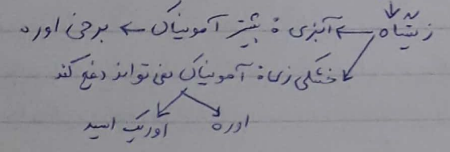 زیتاه ← آبزی: بیشتر آمونیاک ← برخی اوره
خشکی زی: آمونیاک نمی تواند دفع کند
اوره اوریک اسید